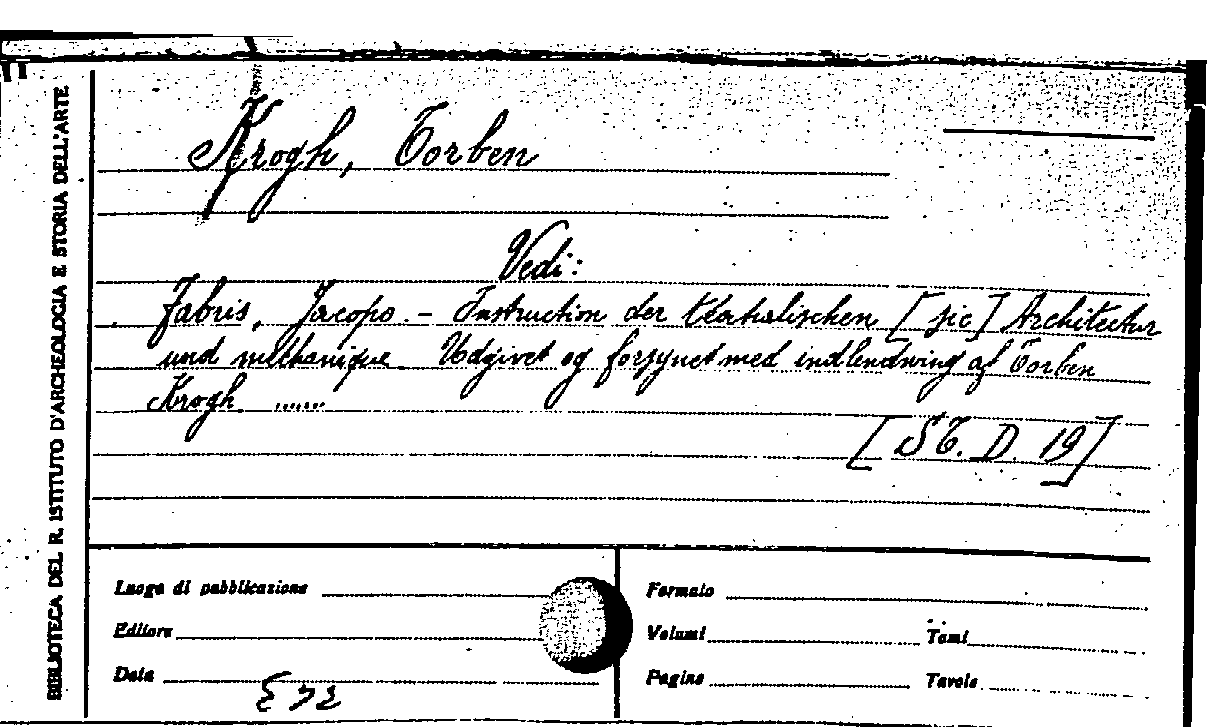 BIBLIOTECA DEL R. ISTITUTO D'ARCHEOLOGIA E STORIA DELL'ARTE
Krogh, Torben
Vedi:
Fabris, Jacopo. - Instruction der teatralischen [sic] Architectur
und mechanique. Udgivet og forsynet med indlendning af Torben
Krogh. ......
[ST. D. 19]
Luogo di pubblicazione
Editore
Data
Formato
Volumi Tomi
Pagine Tavole